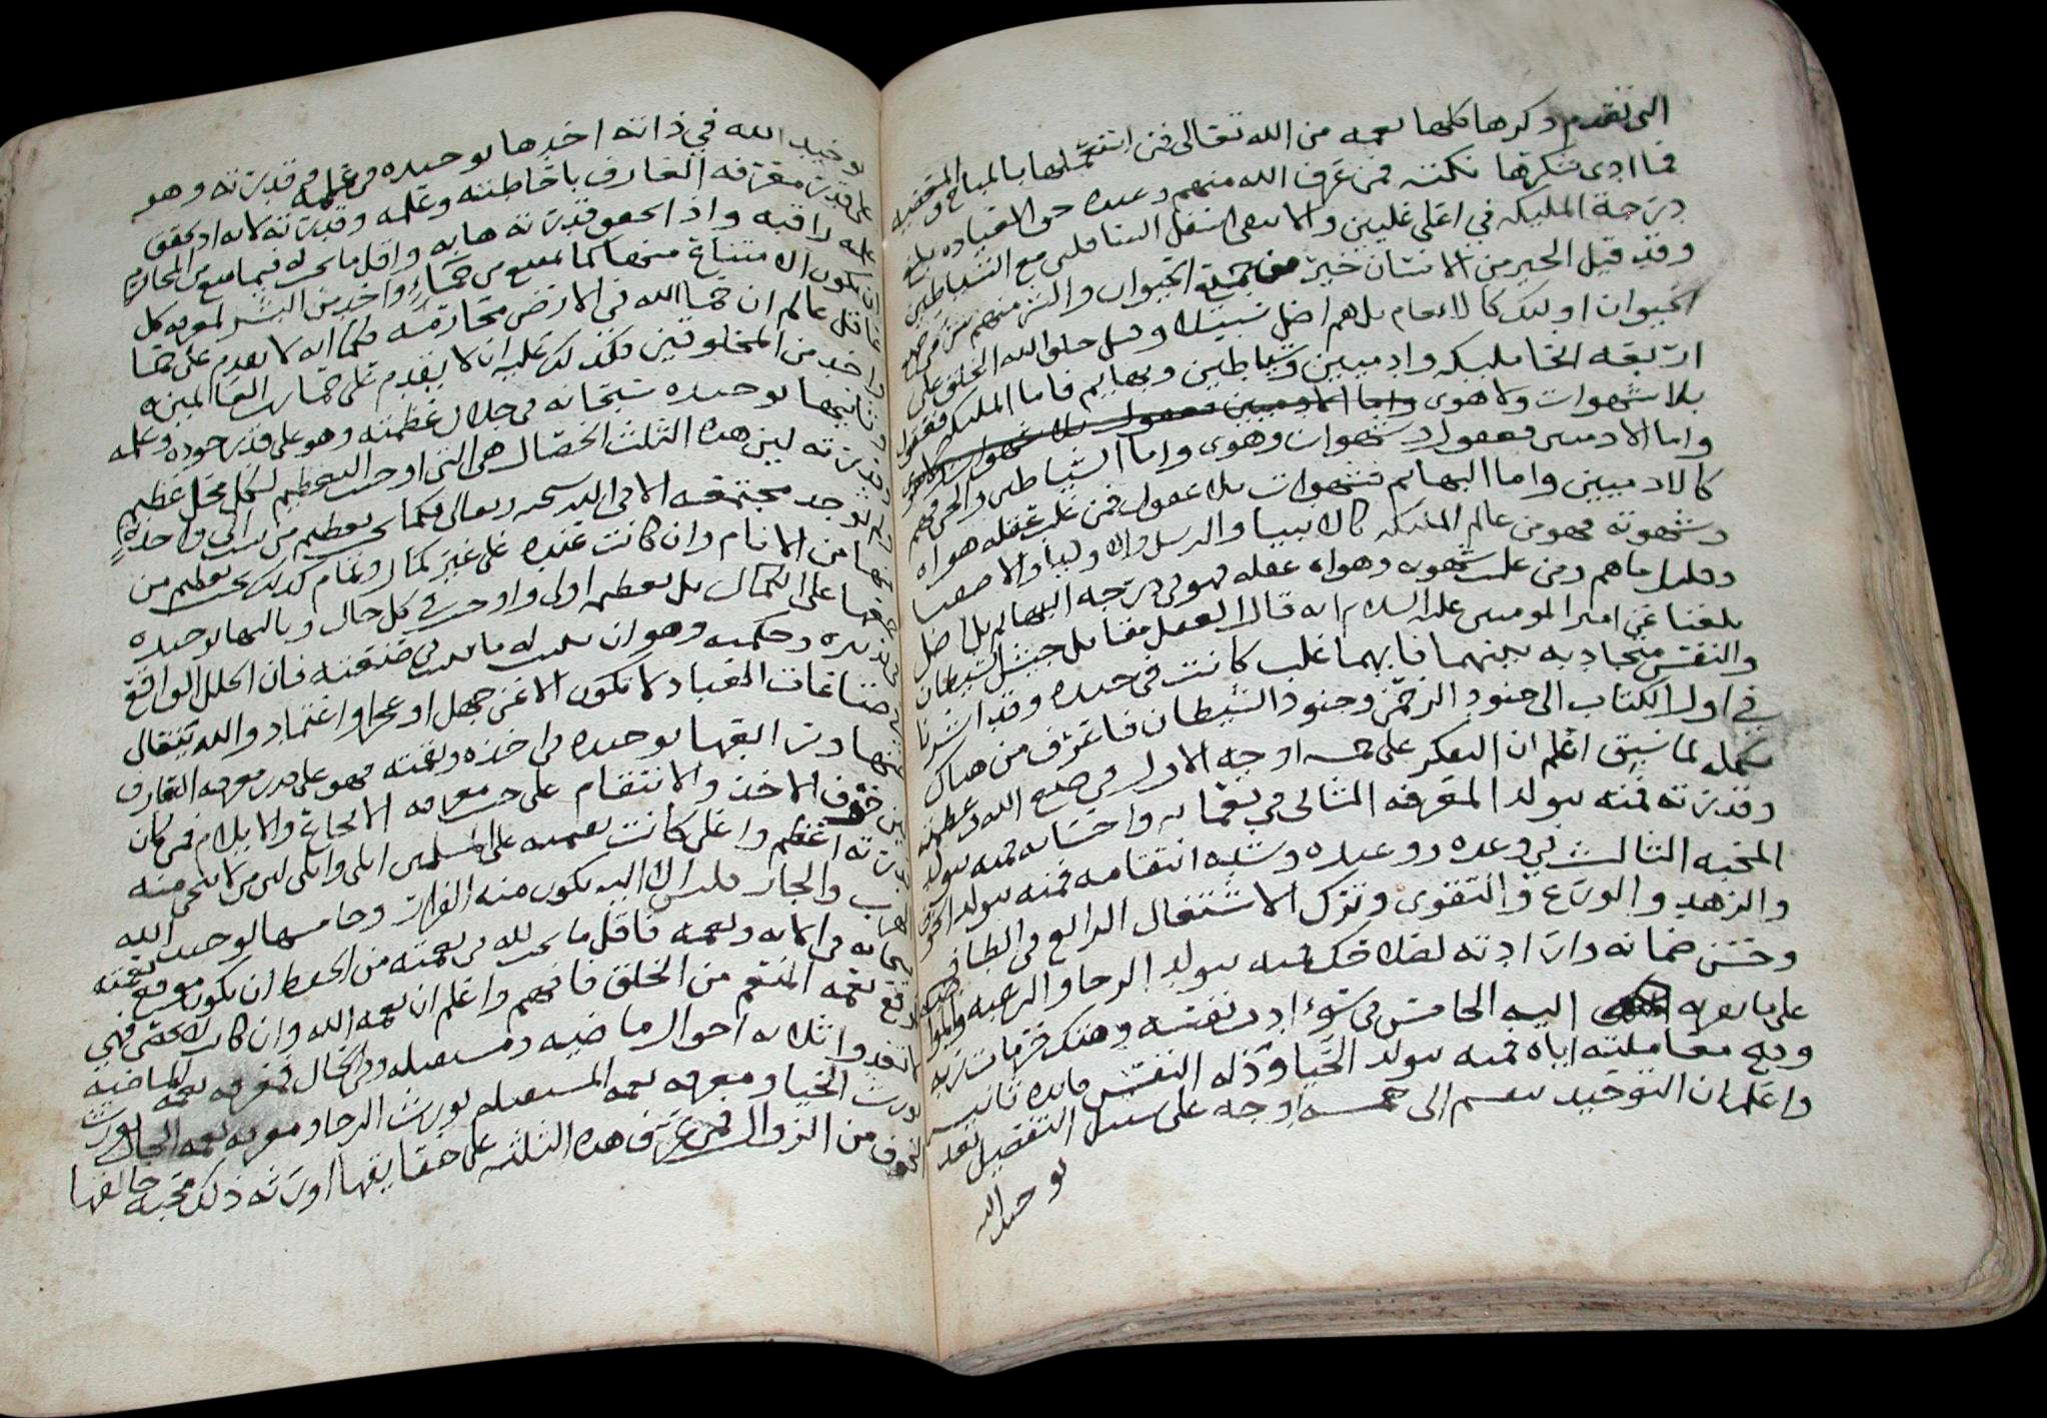 التى تقدم ذكرها كلها نعمه من الله تعالى فمن استعملها بالمباح و المعصيه
فما ادى شكرها نكته فمن عرف الله منهم وعبده حق العباده بلغ
درجة المليكه في اعلى عليين والا بقى اسفل السافلين مع الشياطين
وقد قيل الخير من الانسان خير من جميع الحيوان والشر منهم شر من جميع
الحيوان اوليك كالانعام بل هم اضل سبيلا وقيل خلق الله الخلق على
اربعه انحا مليكه وادميين وشياطين وبهايم فاما المليكه فعقول
بلا شهوات ولا هوى واما الادميين فعقول بلا شهوات ولا هوى
واما الادميين فعقول وشهوات وهوى واما الشياطين والجن فهم
كالادميين واما البهايم فشهوات بلا عقول فمن غلب عقله هواه
وشهوته فهو من عالم المليكه كالانبيا والرسل والاوليا والاصفيا
وقليل ما هم ومن غلب شهوته وهواه عقله فهو في درجه البهايم بل اضل
بلغنا عن امير المومنين عليه السلام انه قال العقل مقابل جيش الشيطان
والنفس متجاذبه بينهما فايهما غلب كانت في حيزه وقد اشرنا
في اول الكتاب الى جنود الرحمن وجنود الشيطان فاعرف من هناك
تكمله لما سبق اعلم ان التفكر على خمسه اوجه الاول في صنع الله وعظمته
وقدرته فمنه يتولد المعرفه الثانى في نعمايه واحسانه فمنه يتولد
المحبه الثالث في وعده ووعيده وشده انتقامه فمنه يتولد الخوف
والزهد والورع والتقوى وترك الاشتغال الرابع في الطافه
وحسن ضمانه وارادته لصلاحك فمنه يتولد الرجا والرغبه
على ما يقربه اليه الخامس في سوء ادب نفسه وهتك حرمات ربه
وقبح معاملته اياه فمنه يتولد الحيا وذله النفس فايده ثانيه
واعلم ان التوحيد ينقسم الى خمسه اوجه على سبيل التفصيل
توحيد الله
توحيد الله في ذاته احدها توحيده في علمه وقدرته وهو
على قدر معرفه العارف باحاطته وعلمه وقدرته لانه اذا تحقق
علمه راقبه واذا تحقق قدرته هابه واقل ما يجب له فيما منع من المحارم
ان يكون الامتناع منها كما يمتنع من حماء واحد من البشر لمعرفه كل
عاقل عالم ان حما الله في الارض محارمه فكما انه لا يقدم على حما
واحد من المخلوقين فكذلك عليه ان لا يقدم على حما رب العالمين
وثانيها توحيده سبحانه في جلال عظمته وهو على قدر جوده وعلمه
وقدرته لان هذه الثلث الخصال هى التى اوجبت التعظيم لكل محل عظيم
ولم توجد مجتمعه الا في الله سبحنه وتعالى فكما يجب تعظيم من واحده
منها من الانام وان كانت عنده على غير كمال وتمام كذلك يجب تعظيم من
على الكمال بل تعظيمه اولى واوجب في كل حال وثالثها توحيده
في تدبيره وحكمته وهو ان يثبت له ما يثبت في صنعته فان الخلل الواقع
في صناعات العباد لا تكون الا عن جهل او عجز او اعتماد والله يتعالى
عنها ورابعها توحيده في اخذه ونقمته فهو على قدر معرفه العارف
من خوف الاخذ والانتقام على حسب معرفه الايجاع والايلام فمن كان
قدرته اعظم واعلى كانت نعمته على المسلمين
وخامسها توحيد الله
سبحانه في الايه ونعمه فاقل ما يجب لله في نعمته من الحفظ ان يكون موقع نعمته
موقع نعمه المنعم من الخلق فافهم واعلم ان نعمه الله وان كانت لا تحصى فهي
ثلاثه احوال ماضيه ومستقبله وفي الحال فمعرفه نعمه الماضيه
تورث الحيا ومعرفه نعمه المستقبله تورث الرجا ومعرفه نعمه الحال تورث
الخوف من الزوال فمن عرف هذه الثلثه على حقايقها اورثه ذلك محبه خالقها